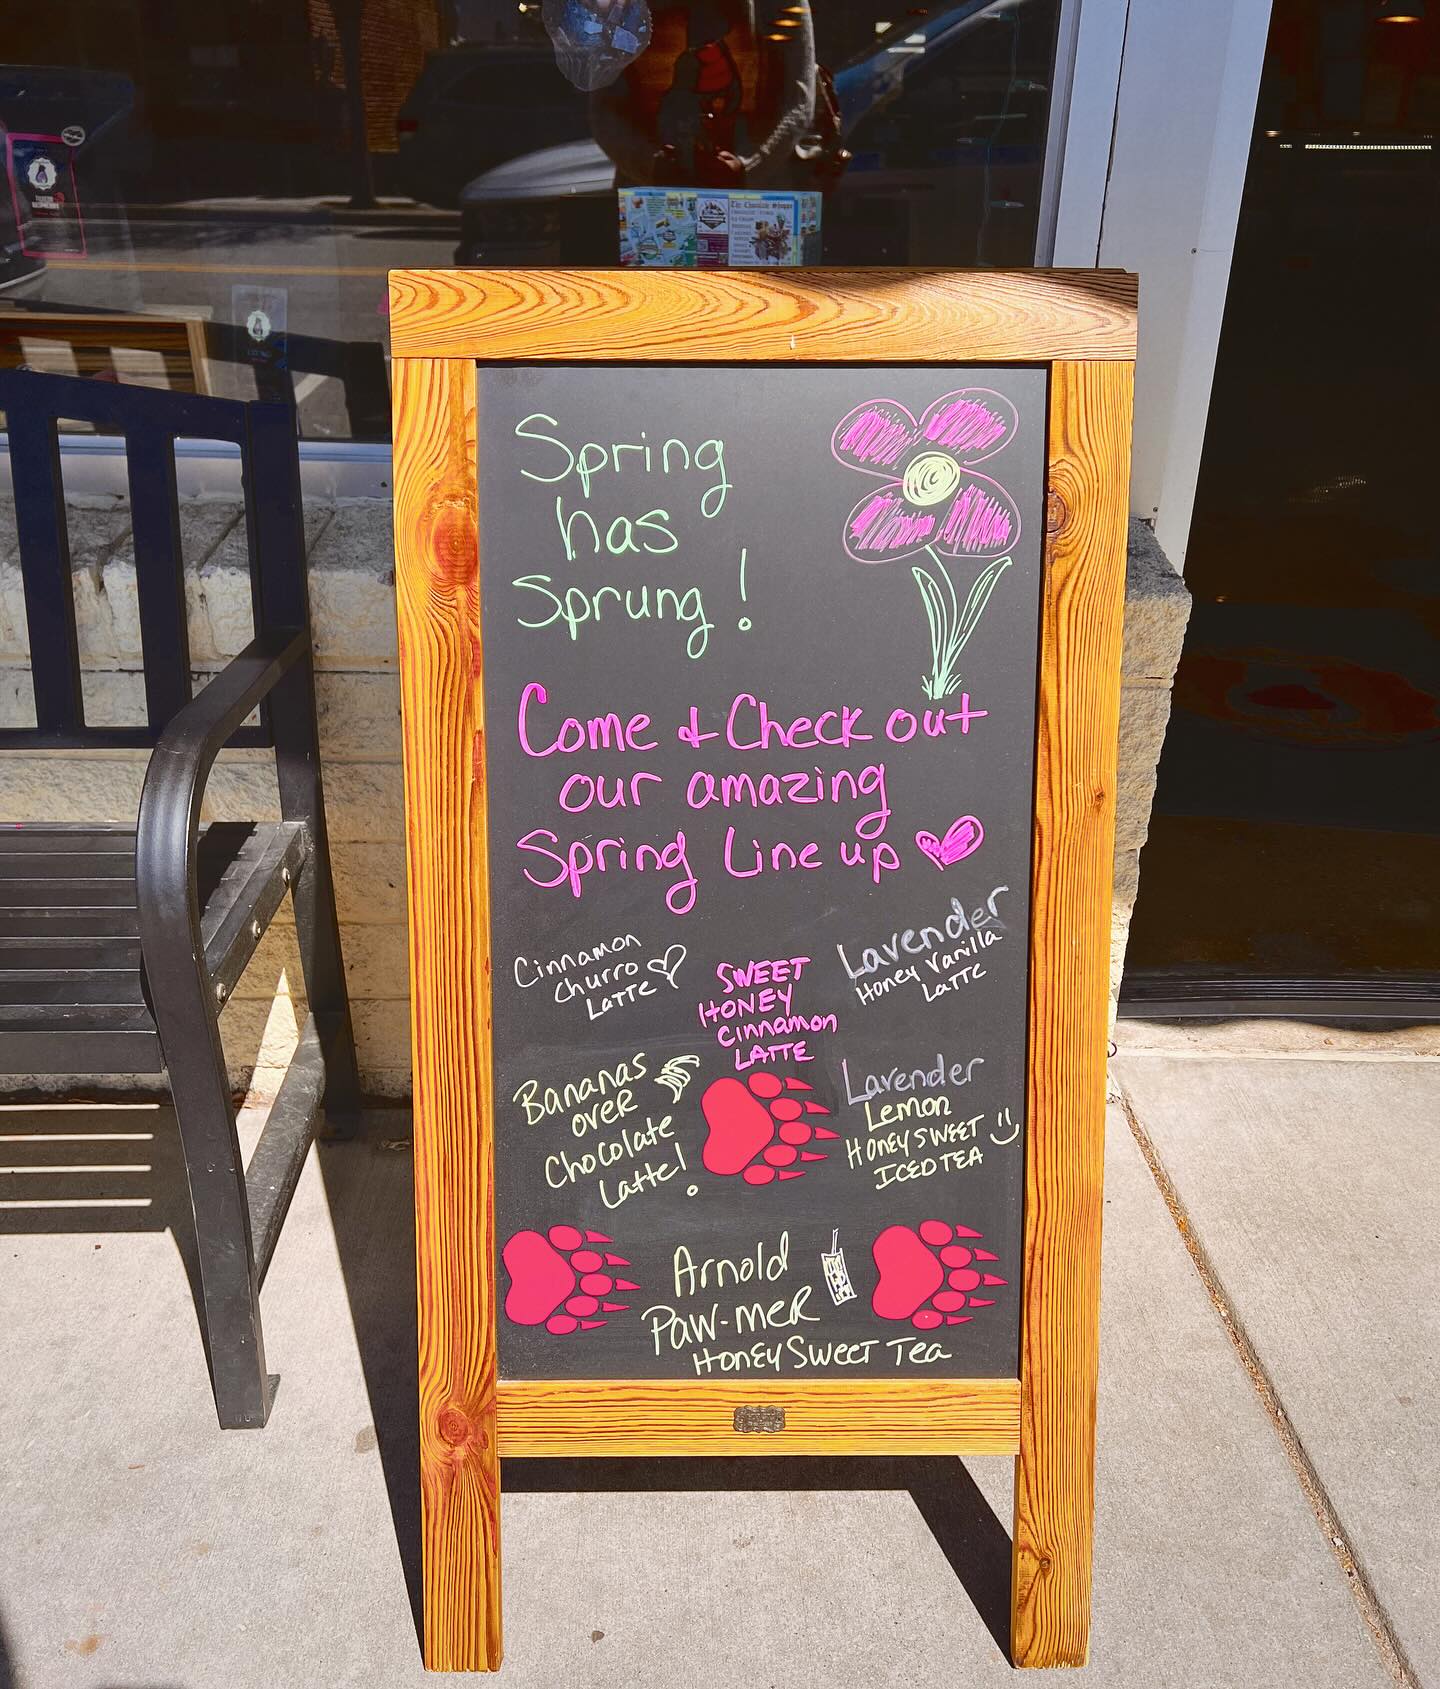 The Chocolate Shoppe
Spring
has
Sprung!
Come & Check out
our amazing
Spring Line up
Cinnamon
Churro
Latte
SWEET
HONEY
Cinnamon
LATTE
Lavender
Honey Vanilla
Latte
Bananas
over
Chocolate
Latte!
Lavender
Lemon
Honey SWEET
ICED TEA
Arnold
Paw-mer
Honey Sweet Tea